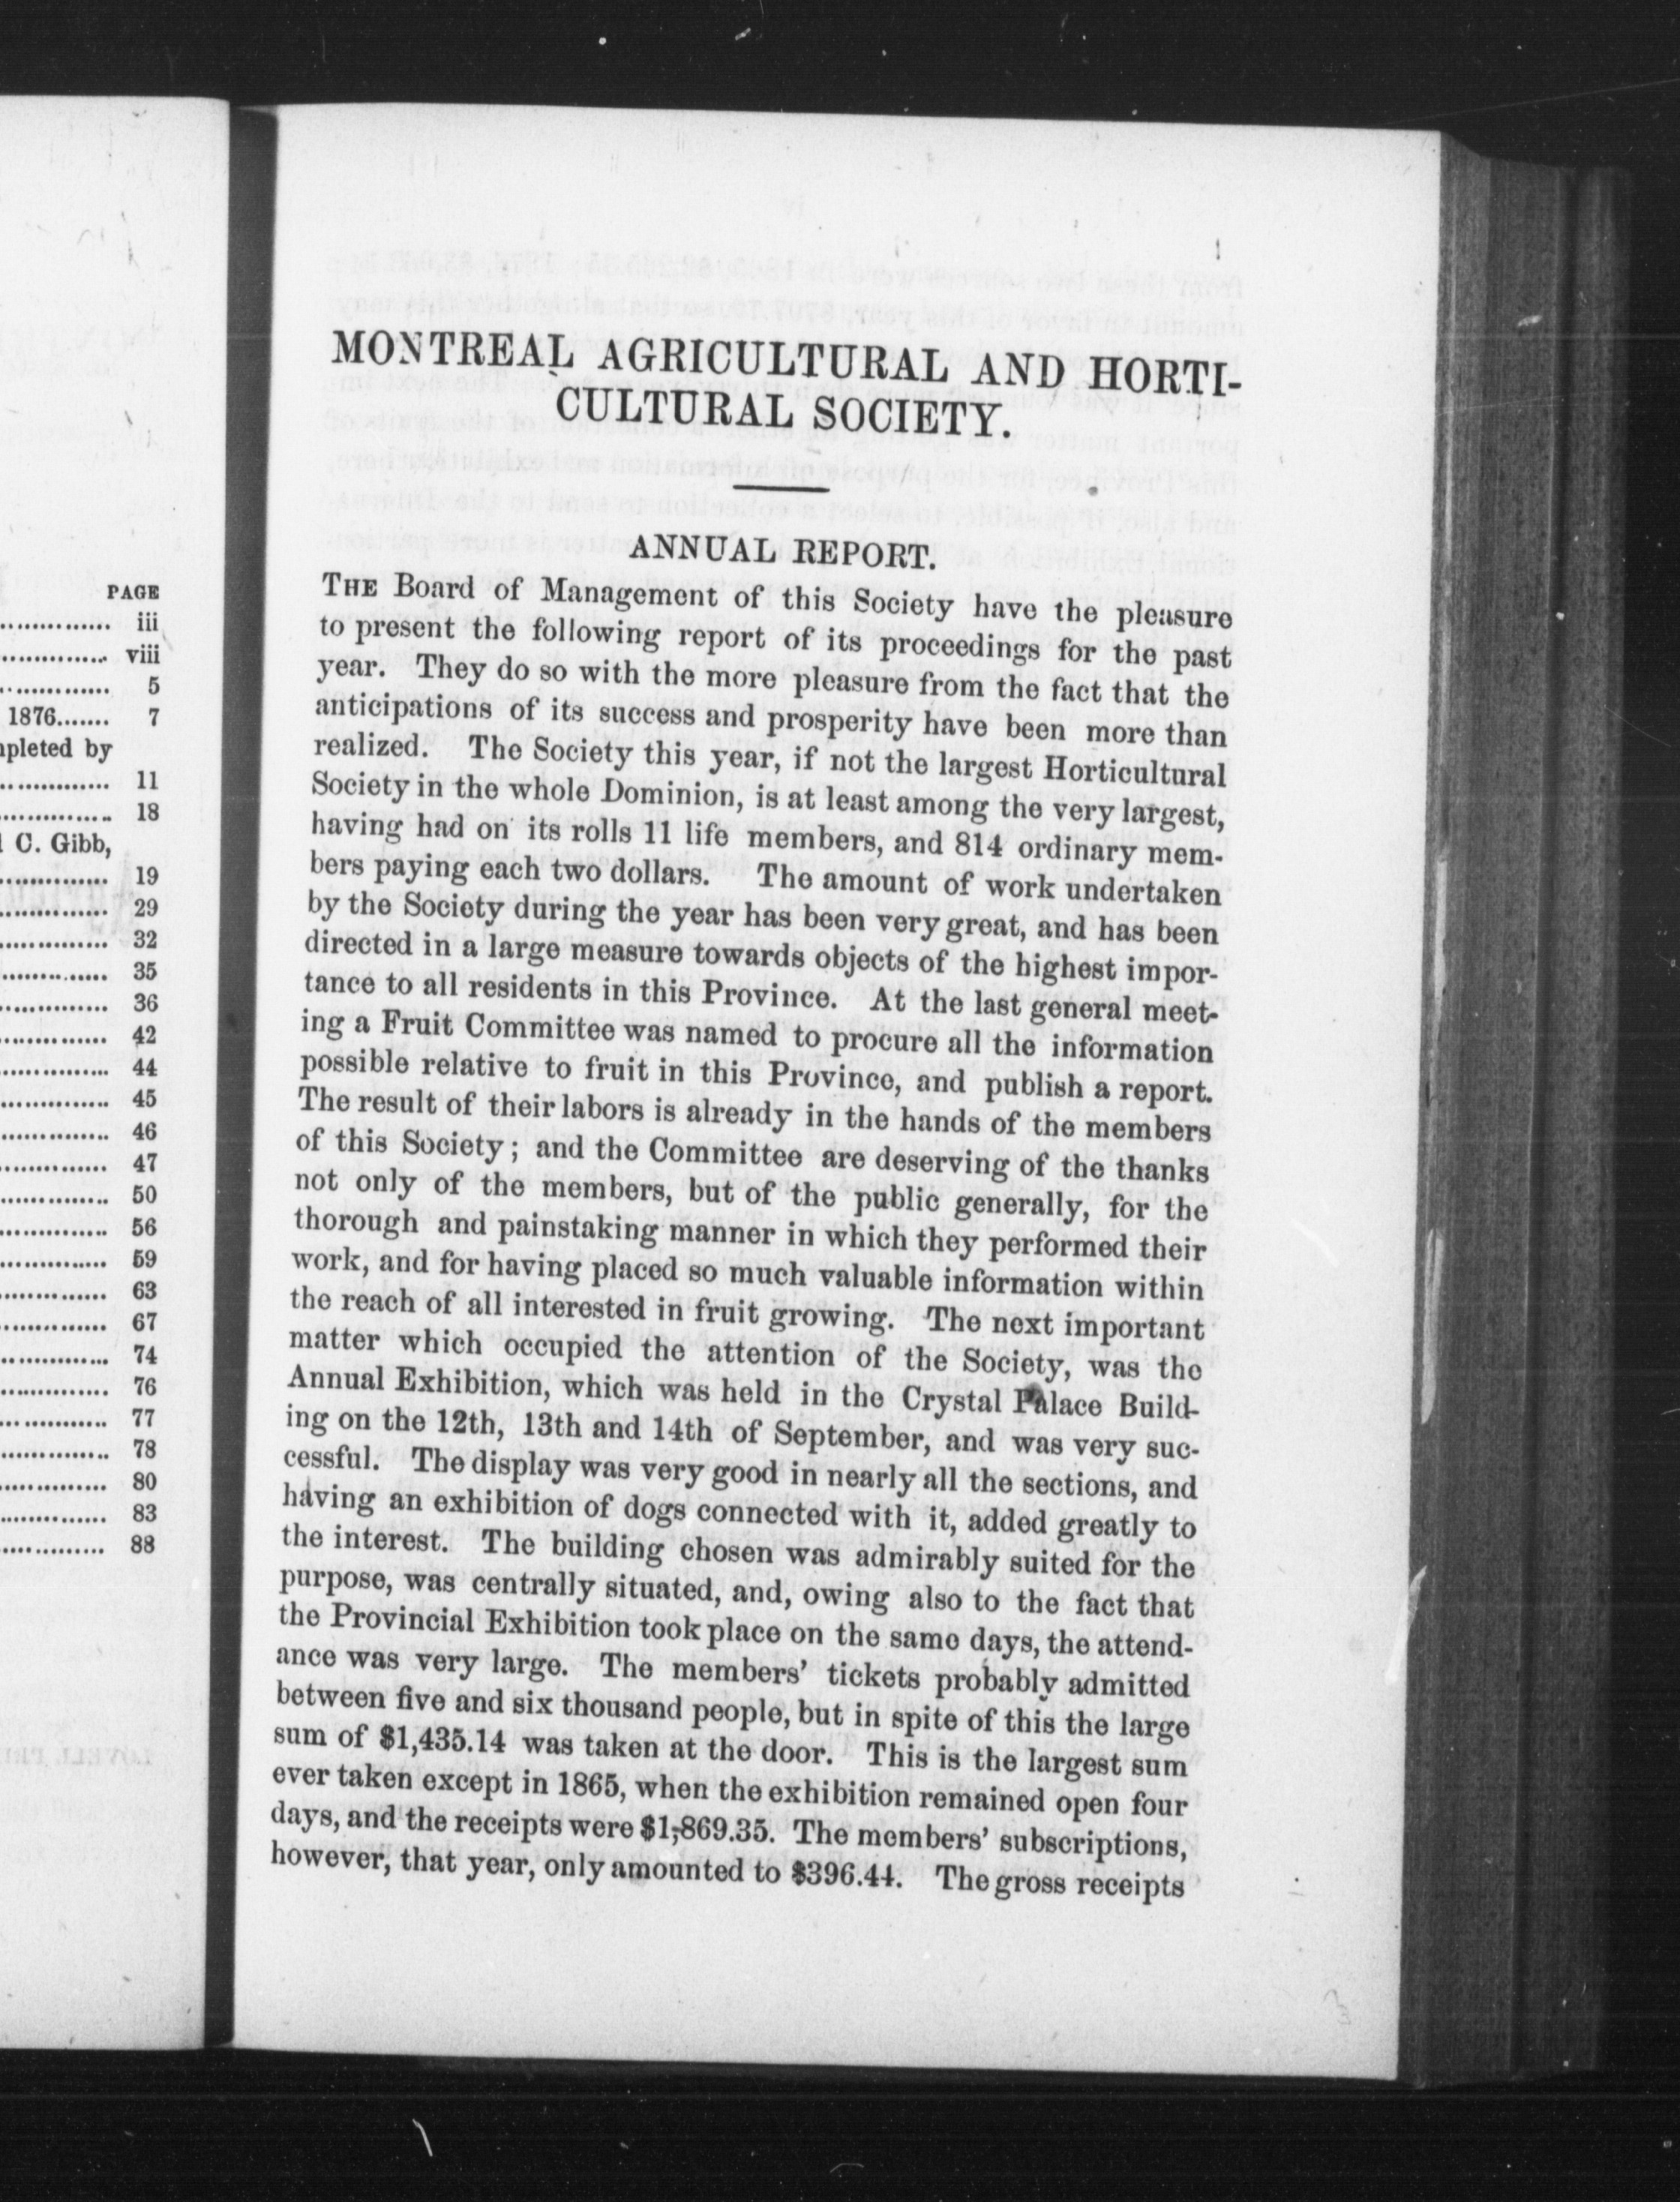 PAGE
iii
viii
5
1876....... 7
by
11
18
C. Gibb,
19
29
32
35
36
42
44
45
46
47
50
56
59
63
67
74
76
77
78
80
83
88
MONTREAL AGRICULTURAL AND HORTI-
CULTURAL SOCIETY.
ANNUAL REPORT.
THE Board of Management of this Society have the pleasure
to present the following report of its proceedings for the past
year. They do so with the more pleasure from the fact that the
anticipations of its success and prosperity have been more than
realized. The Society this year, if not the largest Horticultural
Society in the whole Dominion, is at least among the very largest,
having had on its rolls 11 life members, and 814 ordinary mem-
bers paying each two dollars. The amount of work undertaken
by the Society during the year has been very great, and has been
directed in a large measure towards objects of the highest impor-
tance to all residents in this Province. At the last general meet-
ing a Fruit Committee was named to procure all the information
possible relative to fruit in this Province, and publish a report.
The result of their labors is already in the hands of the members
of this Society; and the Committee are deserving of the thanks
not only of the members, but of the public generally, for the
thorough and painstaking manner in which they performed their
work, and for having placed so much valuable information within
the reach of all interested in fruit growing. The next important
matter which occupied the attention of the Society, was the
Annual Exhibition, which was held in the Crystal Palace Build-
ing on the 12th, 13th and 14th of September, and was very suc-
cessful. The display was very good in nearly all the sections, and
having an exhibition of dogs connected with it, added greatly to
the interest. The building chosen was admirably suited for the
purpose, was centrally situated, and, owing also to the fact that
the Provincial Exhibition took place on the same days, the attend-
ance was very large. The members' tickets probably admitted
between five and six thousand people, but in spite of this the large
sum of $1,435.14 was taken at the door. This is the largest sum
ever taken except in 1865, when the exhibition remained open four
days, and the receipts were $1,869.35. The members' subscriptions,
however, that year, only amounted to $396.44. The gross receipts